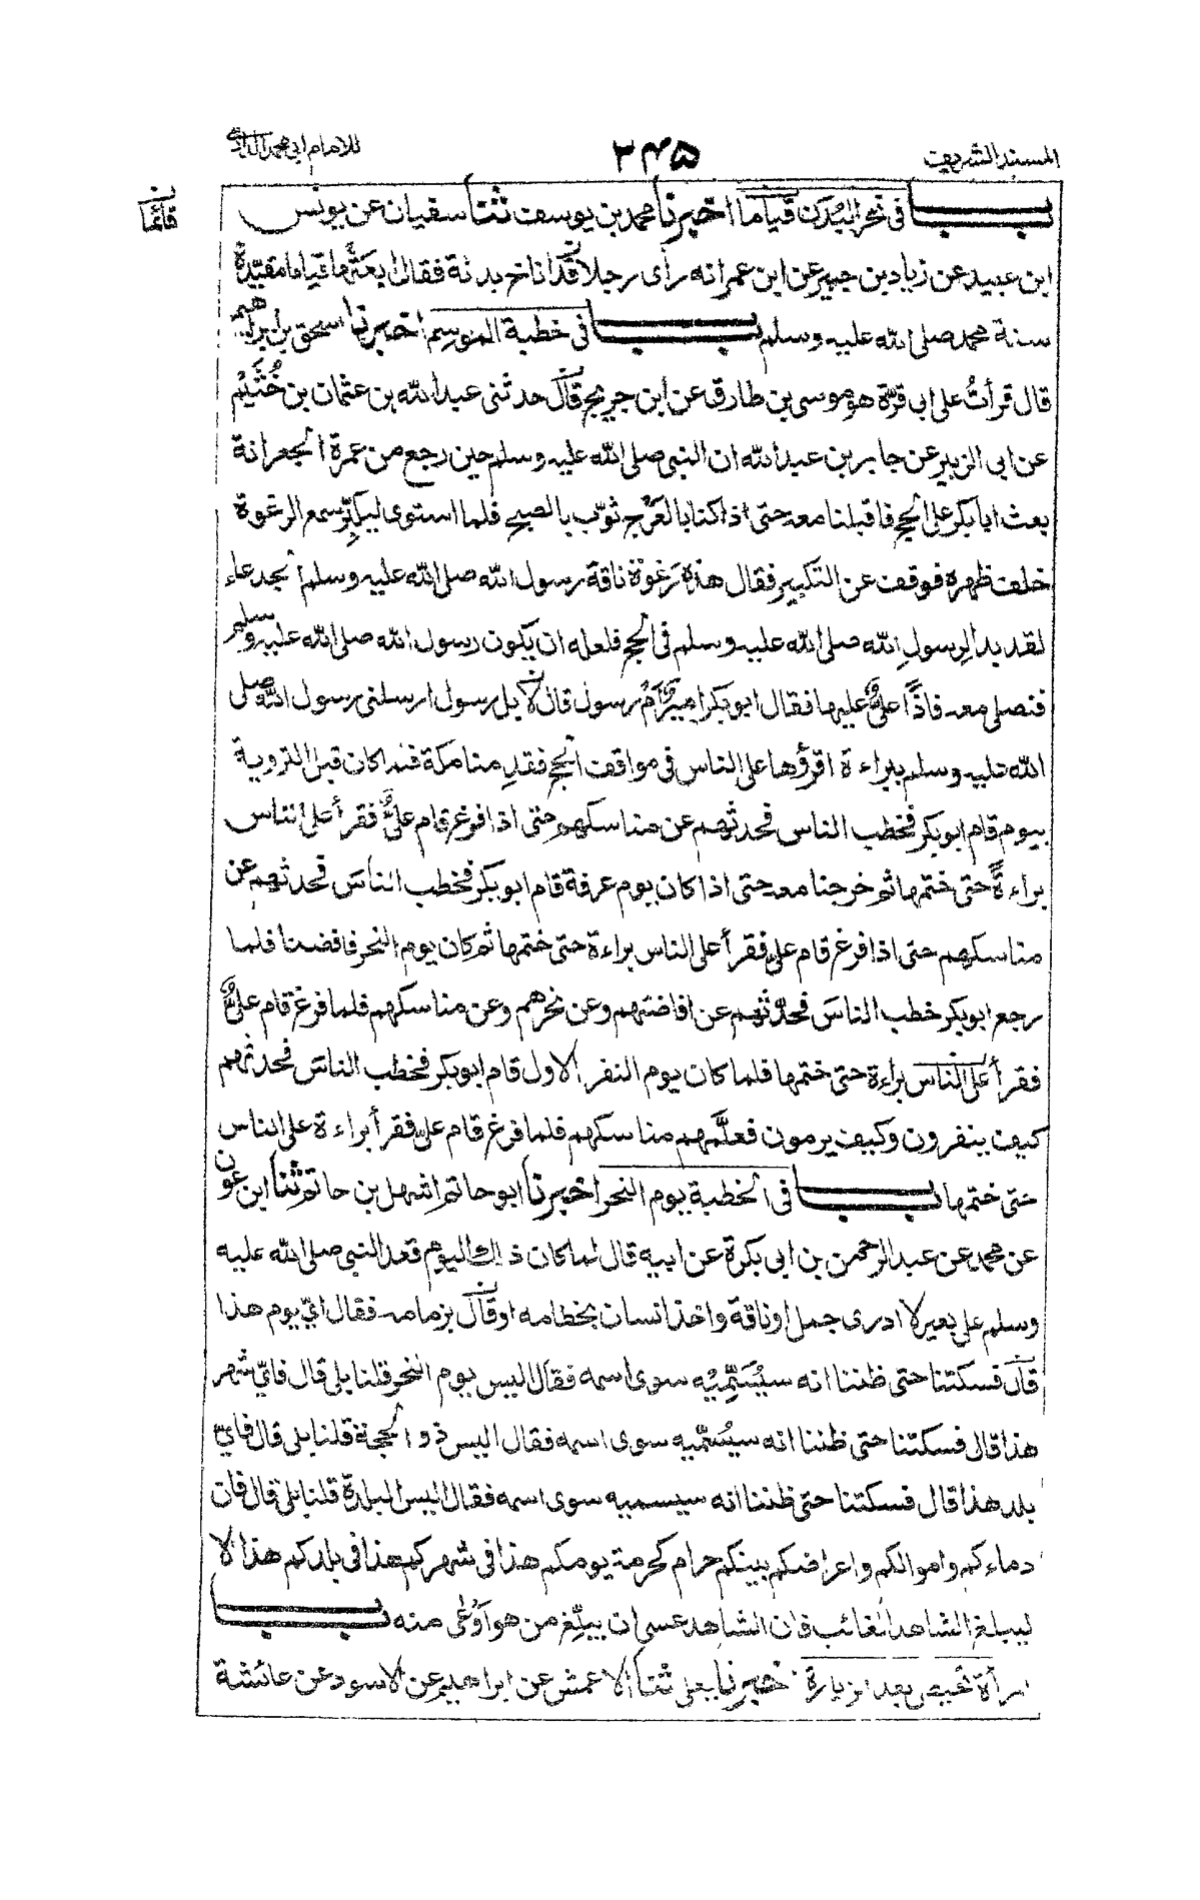 المسند الشريف
٢٤٥
للامام ابى محمد الدارمى
بــاب فى نحر البدن قياما اخبرنا محمد بن يوسف ثنا سفيان عن يونس
قائما
ابن عبيد عن زياد بن جبير عن ابن عمر انه رأى رجلا قد اناخ بدنة فقال ابعثها قياما مقيّدة
سنة محمد صلى الله عليه وسلم بــاب فى خطبة الموسم اخبرنا اسحق بن ابراهيم
قال قرأتُ على ابى قرّة هو موسى بن طارق عن ابن جريج قال حدثنى عبد الله بن عثمان بن خُثَيْم
عن ابى الزبير عن جابر بن عبد الله ان النبى صلى الله عليه وسلم حين رجع من عمرة الجعرانة
بعث ابا بكر على الحج فاقبلنا معه حتى اذا كنا بالعَرْج ثوّب بالصبح فلما استوى ليكبّر سمع الرغوة
خلف ظهره فوقف عن التكبير فقال هذه رَغْوَة ناقة رسول الله صلى الله عليه وسلم الجدعاء
لقد بدا لرسولِ الله صلى الله عليه وسلم فى الحج فلعله ان يكون رسول الله صلى الله عليه وسلم
فنصلى معه فاذًا علىٌّ عليها فقال ابو بكر اميرٌ اَمْ رسول قال لا بل رسول ارسلنى رسول الله صلى
الله عليه وسلم ببراءة اقرؤها على الناس فى مواقف الحج فقدمنا مكة فلما كان قبل التروية
بيوم قام ابو بكر فخطب الناس فحدثهم عن مناسكهم حتى اذا فرغ قام علىٌّ فقرأ على الناس
براءةً حتى ختمها ثم خرجنا معه حتى اذا كان يوم عرفة قام ابو بكر فخطب الناسَ فحدثهم عن
مناسكهم حتى اذا فرغ قام على فقرأ على الناس براءة حتى ختمها ثم كان يوم النحر فافضنا فلما
رجع ابو بكر خطب الناسَ فحدّثهم عن افاضتهم وعن نحرهم وعن مناسكهم فلما فرغ قام علىٌّ
فقرأ على الناس براءة حتى ختمها فلما كان يوم النفر الاول قام ابو بكر فخطب الناسَ فحدثهم
كيف ينفرون وكيف يرمون فعلَّمهم مناسكهم فلما فرغ قام على فقرأ براءة على الناس
حتى ختمها بــاب فى الخطبة يوم النحر اخبرنا ابو حاتم اشهل بن حاتم ثنا ابن عون
عن محمد عن عبد الرحمن بن ابى بكرة عن ابيه قال لما كان ذلك اليوم قعد النبى صلى الله عليه
وسلم على بعير لا ادرى جمل او ناقة واخذ انسان بخطامه او قال بزمامه فقال اىّ يوم هذا
قال فسكتنا حتى ظننا انه سيُسَمِّيْه سوى اسمه فقال اليس يوم النحر قلنا بلى قال فاىّ شهر
هذا قال فسكتنا حتى ظننا انه سيُسَمّيه سوى اسمه فقال اليس ذو الحجة قلنا بلى قال فاىّ
بلد هذا قال فسكتنا حتى ظننا انه سيسميه سوى اسمه فقال اليس البلدة قلنا بلى قال فان
دماءكم واموالكم واعراضكم بينكم حرام كحرمة يومكم هذا فى شهركم هذا فى بلدكم هذا الا
ليبلغ الشاهد الغائب فان الشاهد عسى ان يبلّغ من هو اَوْعٰى منه بــاب
امرأة تحيض بعد الزيارة اخبرنا يعلى ثنا الاعمش عن ابراهيم عن الاسود عن عائشة